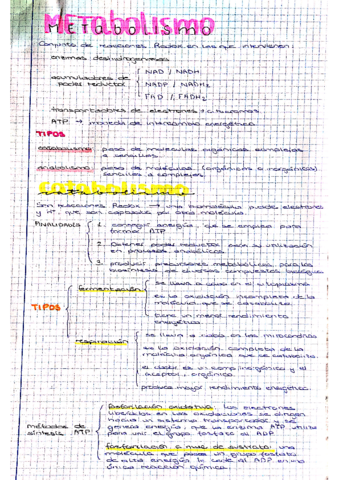 METABOLISMO
Conjunto de reacciones Redox en las que intervienen:
enzimas deshidrogenasas
acumuladores de poder reductor
NAD / NADH
NADP / NADPH₂
FAD / FADH₂
transportadores de electrones
ATP → moneda de intercambio energético
TIPOS
catabolismo: paso de moléculas orgánicas complejas
a sencillas.
anabolismo: paso de moléculas (orgánicas o inorgánicas)
sencillas a complejas.
Catabolismo
Son reacciones Redox → una biomolécula pierde electrones
y H⁺, que son captados por otra molécula.
FINALIDADES
1. conseguir energía, que se emplea para
formar ATP
2. Obtener poder reductor para su utilización
en procesos anabólicos.
3. producir precursores metabólicos para la
biosíntesis de diversos compuestos
TIPOS
fermentación
se lleva a cabo en el citoplasma
es la oxidación incompleta de la
molécula que se cataboliza.
tiene un menor rendimiento
energético.
respiración
se lleva a cabo en las mitocondrias
es la oxidación completa de la
molécula orgánica que se cataboliza.
el dador es un comp. inorgánico y el
aceptor, orgánico.
produce mayor rendimiento energético.
métodos de
síntesis ATP
fosforilación oxidativa: los electrones
liberados en las oxidaciones se dirigen
hacia un sistema transportador y se
genera energía, que la enzima ATP utiliza
para unir el grupo fosfato al ADP.
fosforilación a nivel de sustrato: una
molécula que posee un grupo fosfato
de alta energía lo cede al ADP en una
única reacción química.